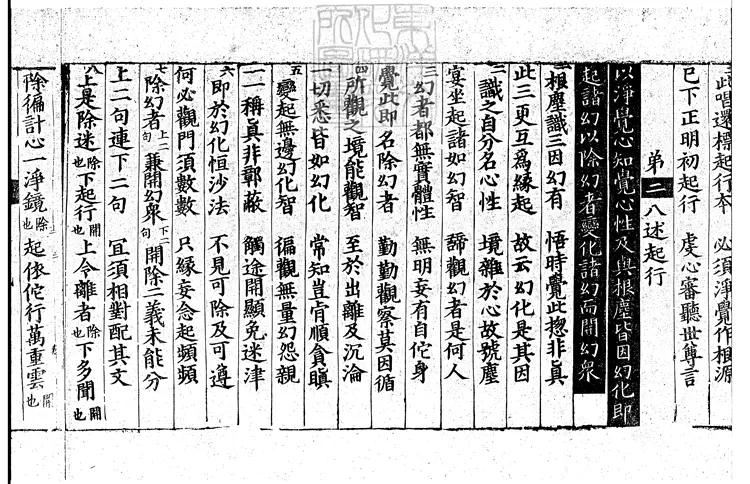 此唱還標起行本　必須淨覺作根源
已下正明初起行　虔心審聽世尊言
第二八述起行
以淨覺心知覺心性及與根塵皆因幻化即
起諸幻以除幻者變化諸幻而開幻眾
根塵識三因幻有　悟時覺此揔非真
此三更互為緣起　故云幻化是其因
二識之自分名心性　境雜於心故號塵
宴坐起諸如幻智　諦觀幻者是何人
三幻者都無實體性　無明妄有自佗身
覺此即名除幻者　勤勤觀察莫因循
四所觀之境能觀智　至於出離及沉淪
一切悉皆如幻化　常知豈肯順貪瞋
五變起無邊幻化智　徧觀無量幻怨親
一一稱真非鄣蔽　觸途開顯免迷津
六即於幻化恒沙法　不見可除及可遵
何必觀門須數數　只緣妄念起頻頻
七除幻者上二句兼開幻眾下二句　開除二義未能分
上二句連下二句　冝須相對配其文
八上是除迷除也下起行開也　上令離者除也下多聞開也
除徧計心一淨鏡除也　起依佗行萬重雲開也